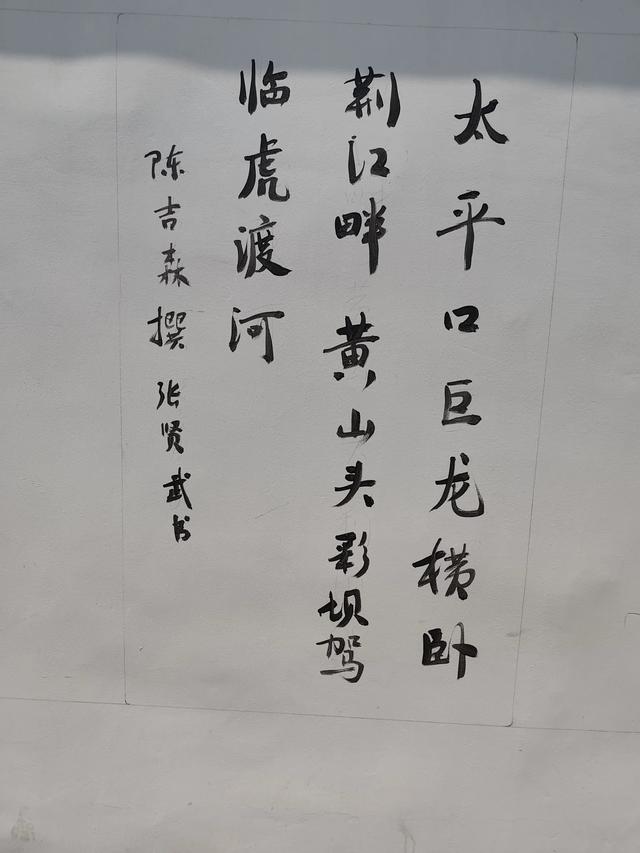 太平口巨龙横卧
荆江畔 黄山头彩坝驾
临虎渡河
陈吉森撰 张贤武书